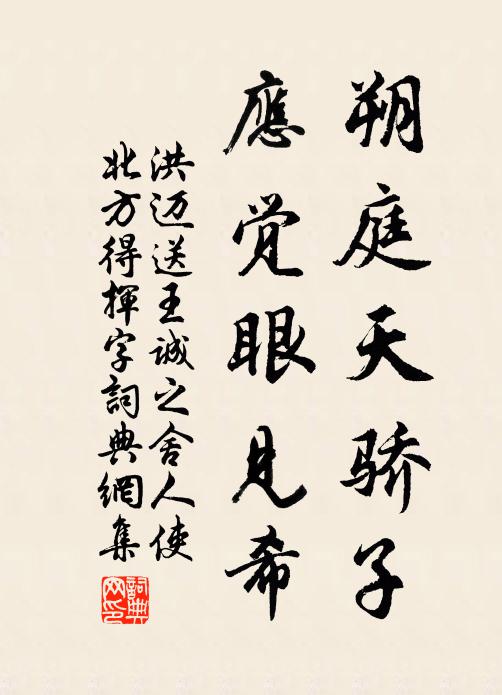 朔庭天骄子
應觉眼見希
洪迈送王诚之舍人使
北方得揮字詞典網集
詞典
网印